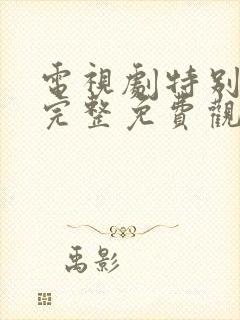 電視劇特別
完整免費觀
禹影